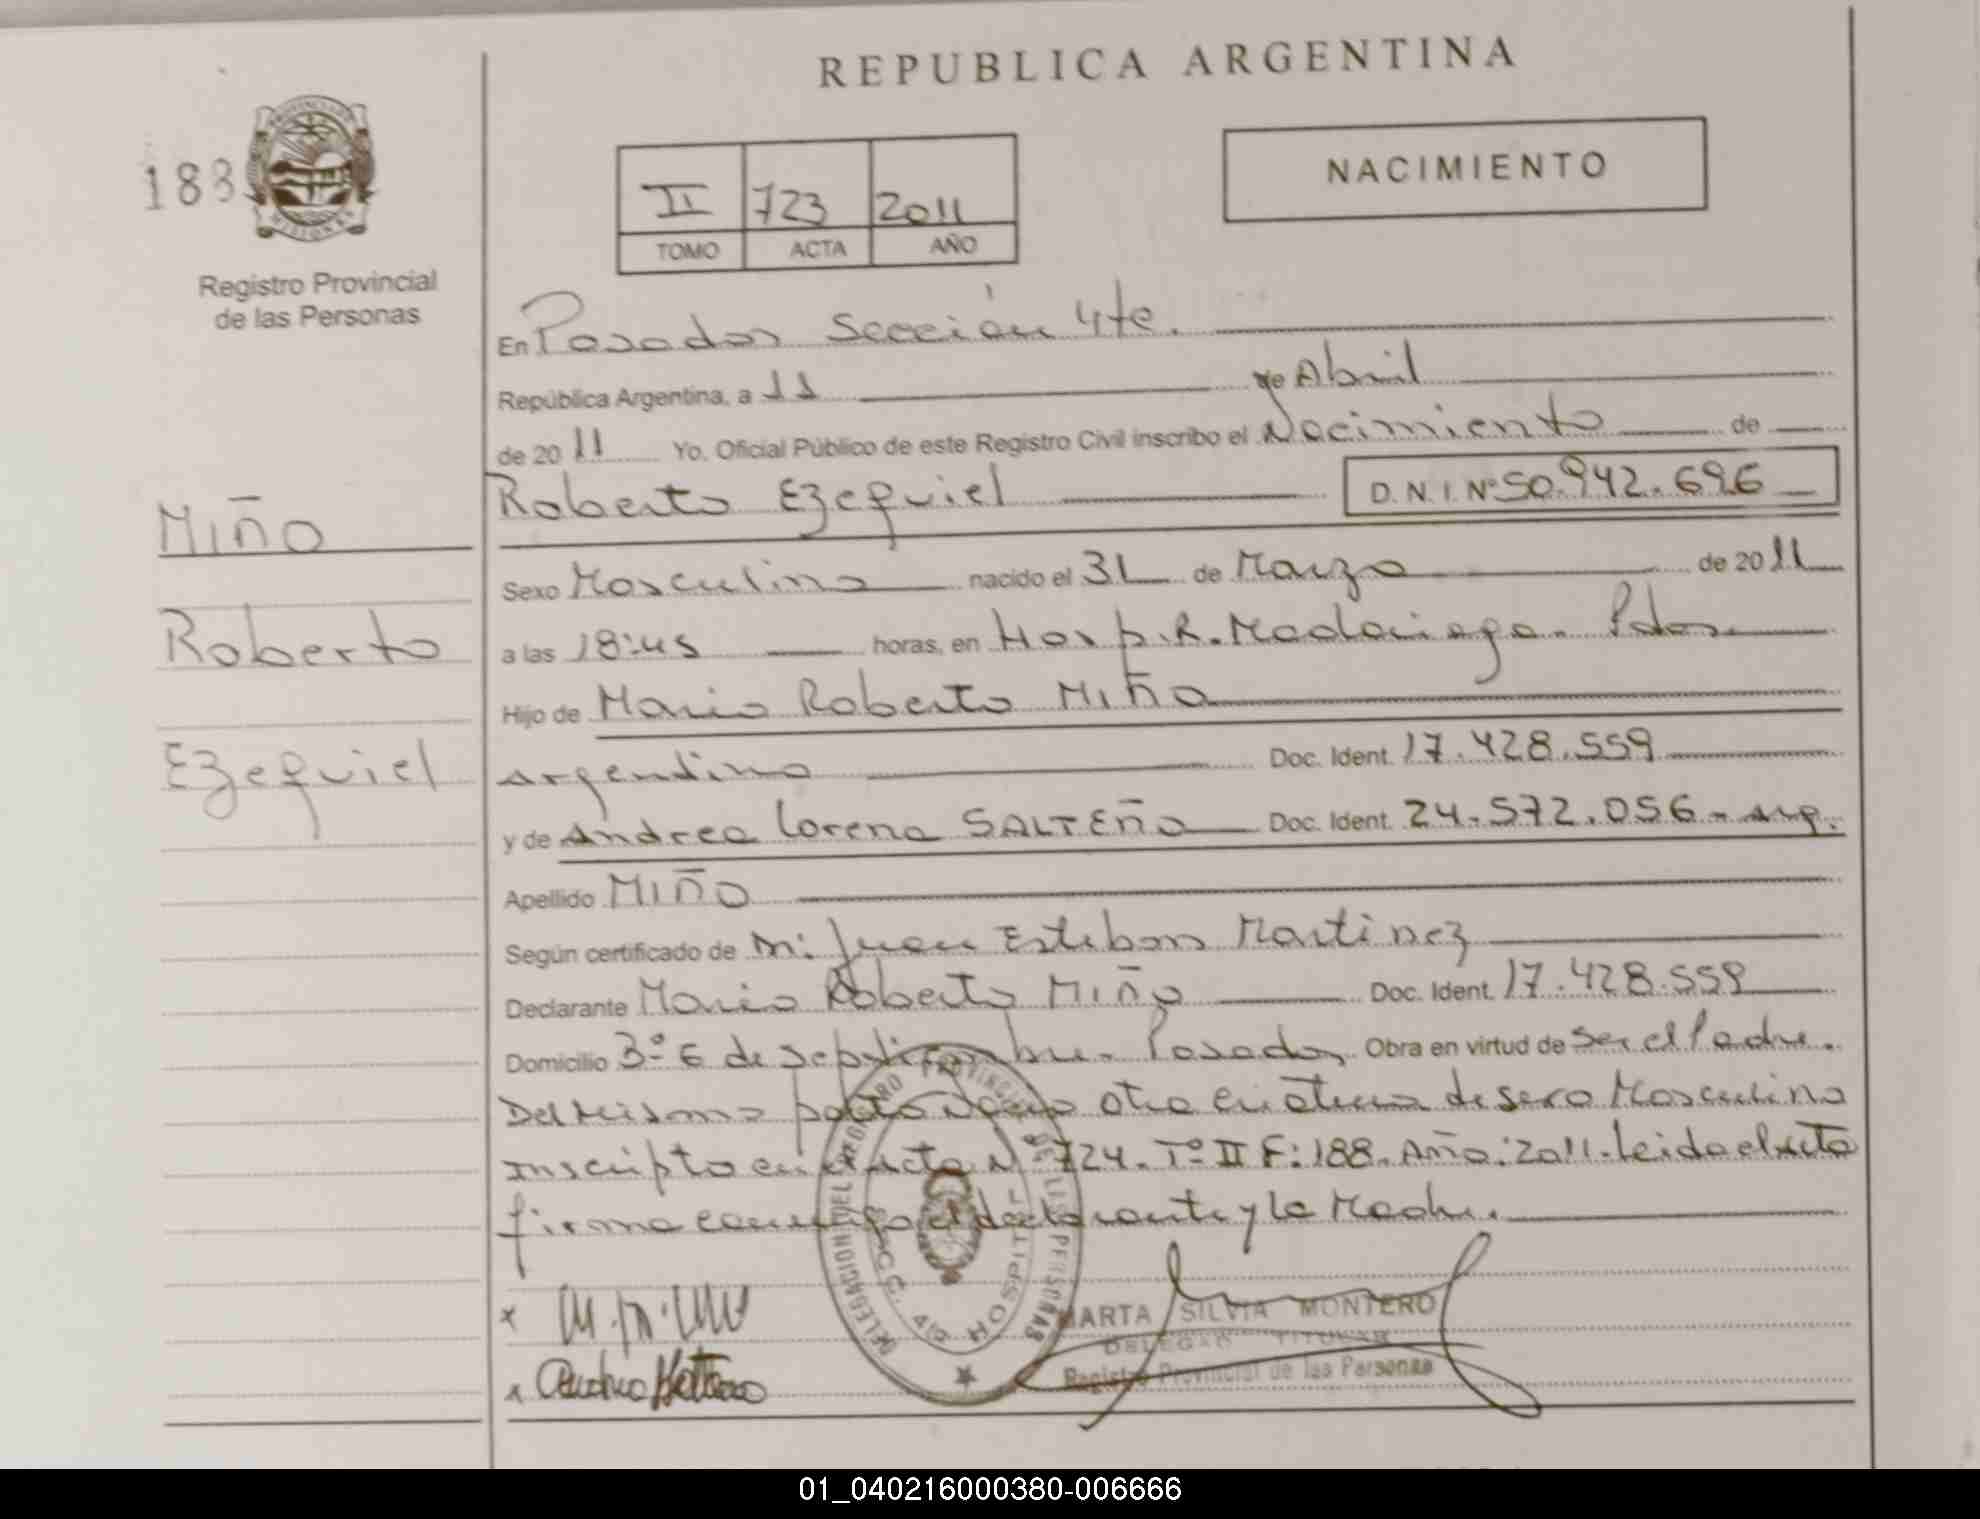 REPUBLICA ARGENTINA
188
PROVINCIA DE MISIONES
Registro Provincial
de las Personas
II 723 2011
TOMO ACTA AÑO
NACIMIENTO
En Posadas Sección 4te.
República Argentina, a 11 de Abril
de 2011 Yo, Oficial Público de este Registro Civil inscribo el Nacimiento de
Roberto Ezequiel D.N.I. Nº 50.942.696
MIÑO
Roberto
Ezequiel
Sexo Masculino nacido el 31 de Marzo de 2011
a las 18:45 horas, en Hosp. R. Madariaga. Pdas.
Hijo de Mario Roberto MIÑO
Argentino Doc. Ident. 17.428.559
y de Andrea Lorena SALTEÑO Doc. Ident. 24.572.056 - Arg.
Apellido MIÑO
Según certificado de M: Juan Esteban Martinez
Declarante Mario Roberto MIÑO Doc. Ident. 17.428.559
Domicilio 3º 6 de Septiembre. Posadas Obra en virtud de Ser el Padre.
Del Mismo parto otra criatura de sexo Masculino
Inscripto en el Acta Nº 724. Tº II F: 188. Año: 2011. Leida el Acta
firma conmigo el declarante y la Madre.
DELEGACION DEL REGISTRO PROVINCIAL DE LAS PERSONAS
SECC. 4ta HOSPITAL
MARTA SILVIA MONTERO
DELEGADA TITULAR
Registro Provincial de las Personas
01_040216000380-006666